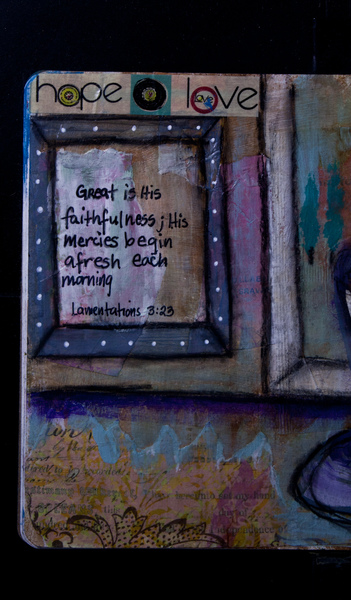 hope love
Great is His
faithfulness; His
mercies begin
afresh each
morning
Lamentations 3:23